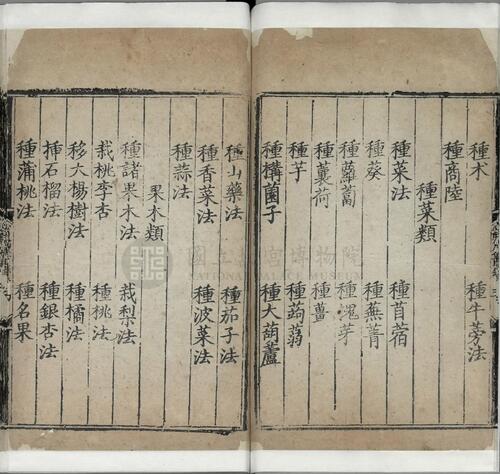 種木 種牛蒡法
種商陸
種菜類
種菜法 種苜蓿
種葵 種蕪菁
種蘿蔔 種芽
種蘘荷 種薑
種芋 種蒟蒻
種構菌子 種大葫蘆
種山藥法 種茄子法
種香菜法 種波菜法
種蒜法
果木類
種諸果木法 栽梨法
栽桃李杏 種桃法
移大楊樹法 種橘法
插石榴法 種銀杏法
種蒲桃法 種名果
國立故宮博物院
NATIONAL PALACE MUSEUM